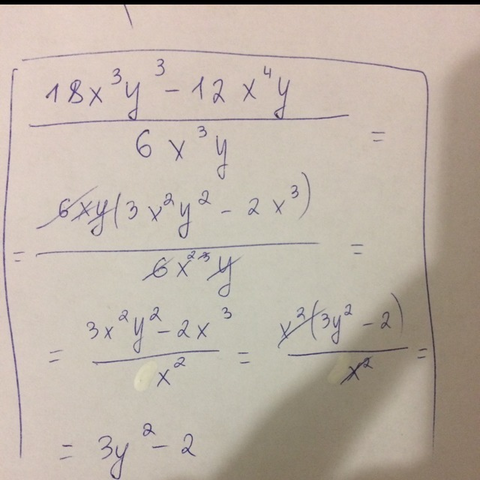 18x³y³ - 12x⁴y
6x³y =
= 6xy(3x²y² - 2x³)
6x²³y =
= 3x²y² - 2x³ = x²(3y² - 2)
x² x² =
= 3y² - 2